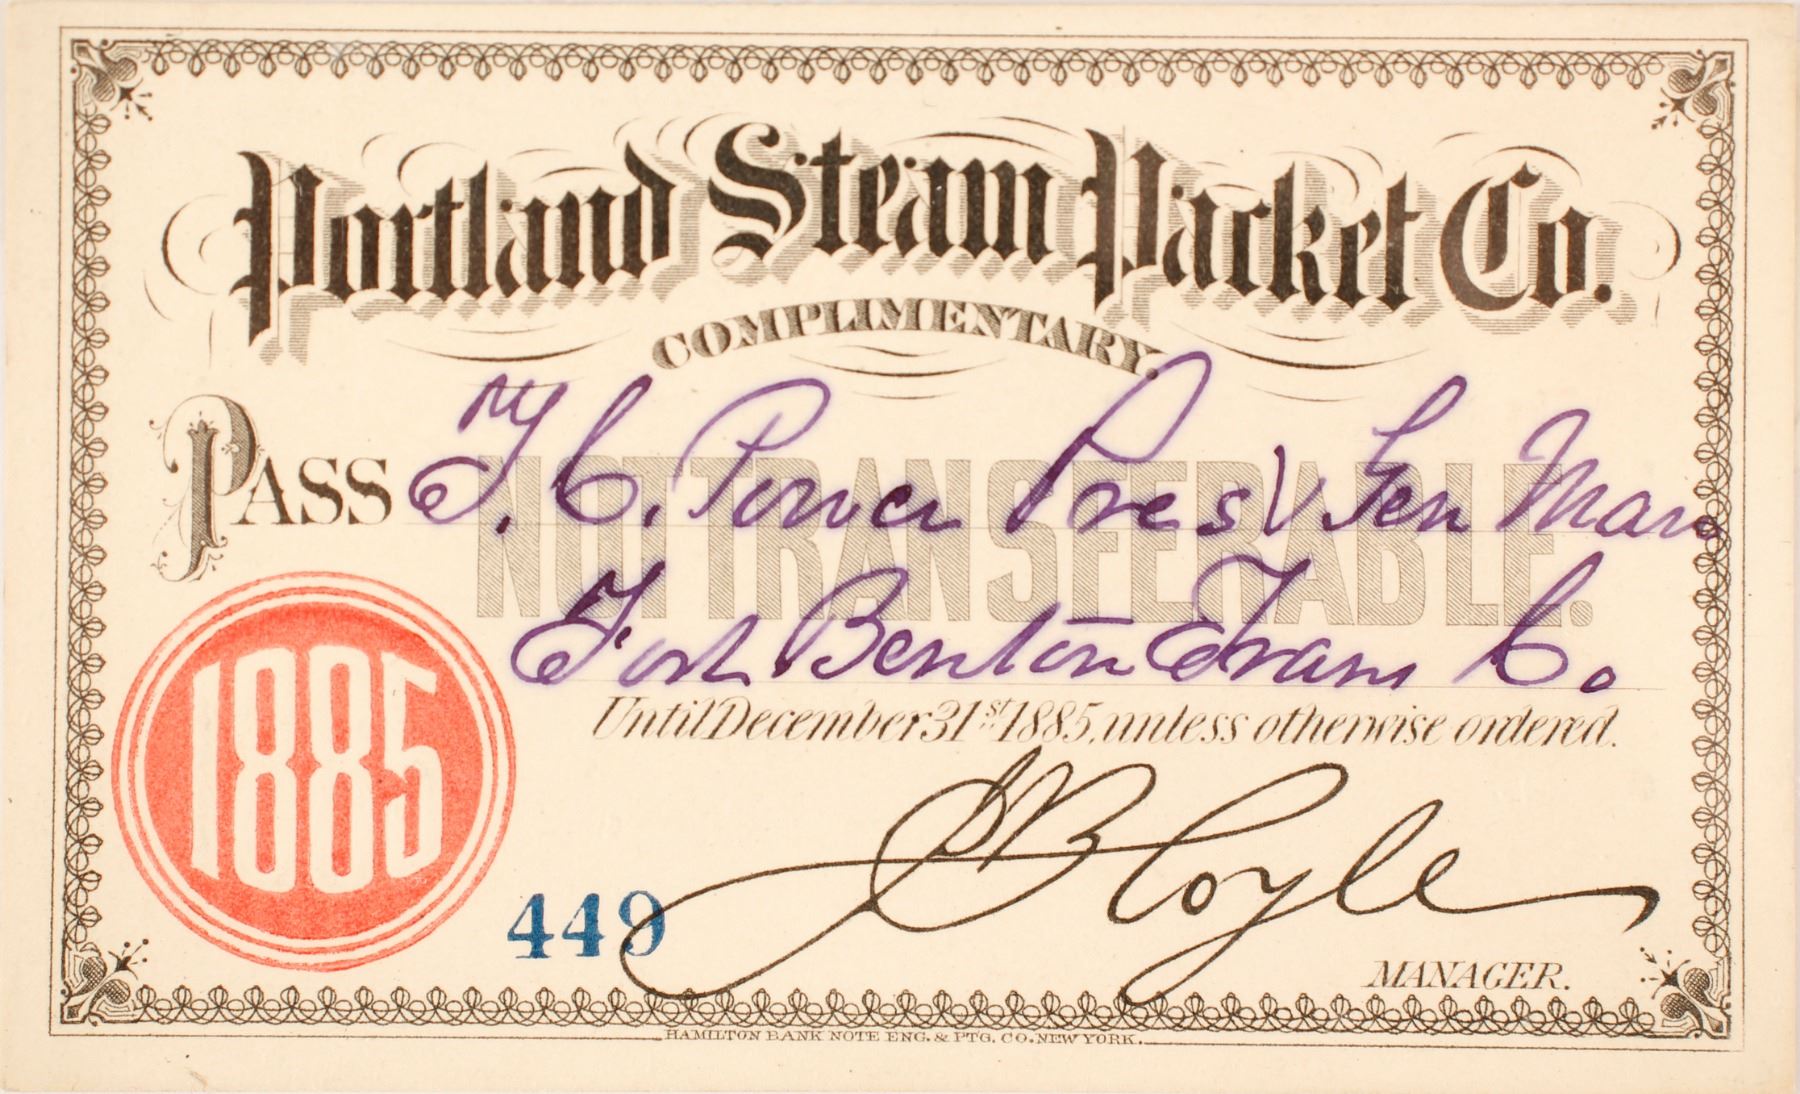 Portland Steam Packet Co.
COMPLIMENTARY.
PASS T. C. Power Pres & Gen Man
NOT TRANSFERABLE.
Fort Benton Trans Co
Until December 31st 1885, unless otherwise ordered.
1885
449
J B Coyle
MANAGER.
HAMILTON BANK NOTE ENG. & PTG. CO. NEW YORK.